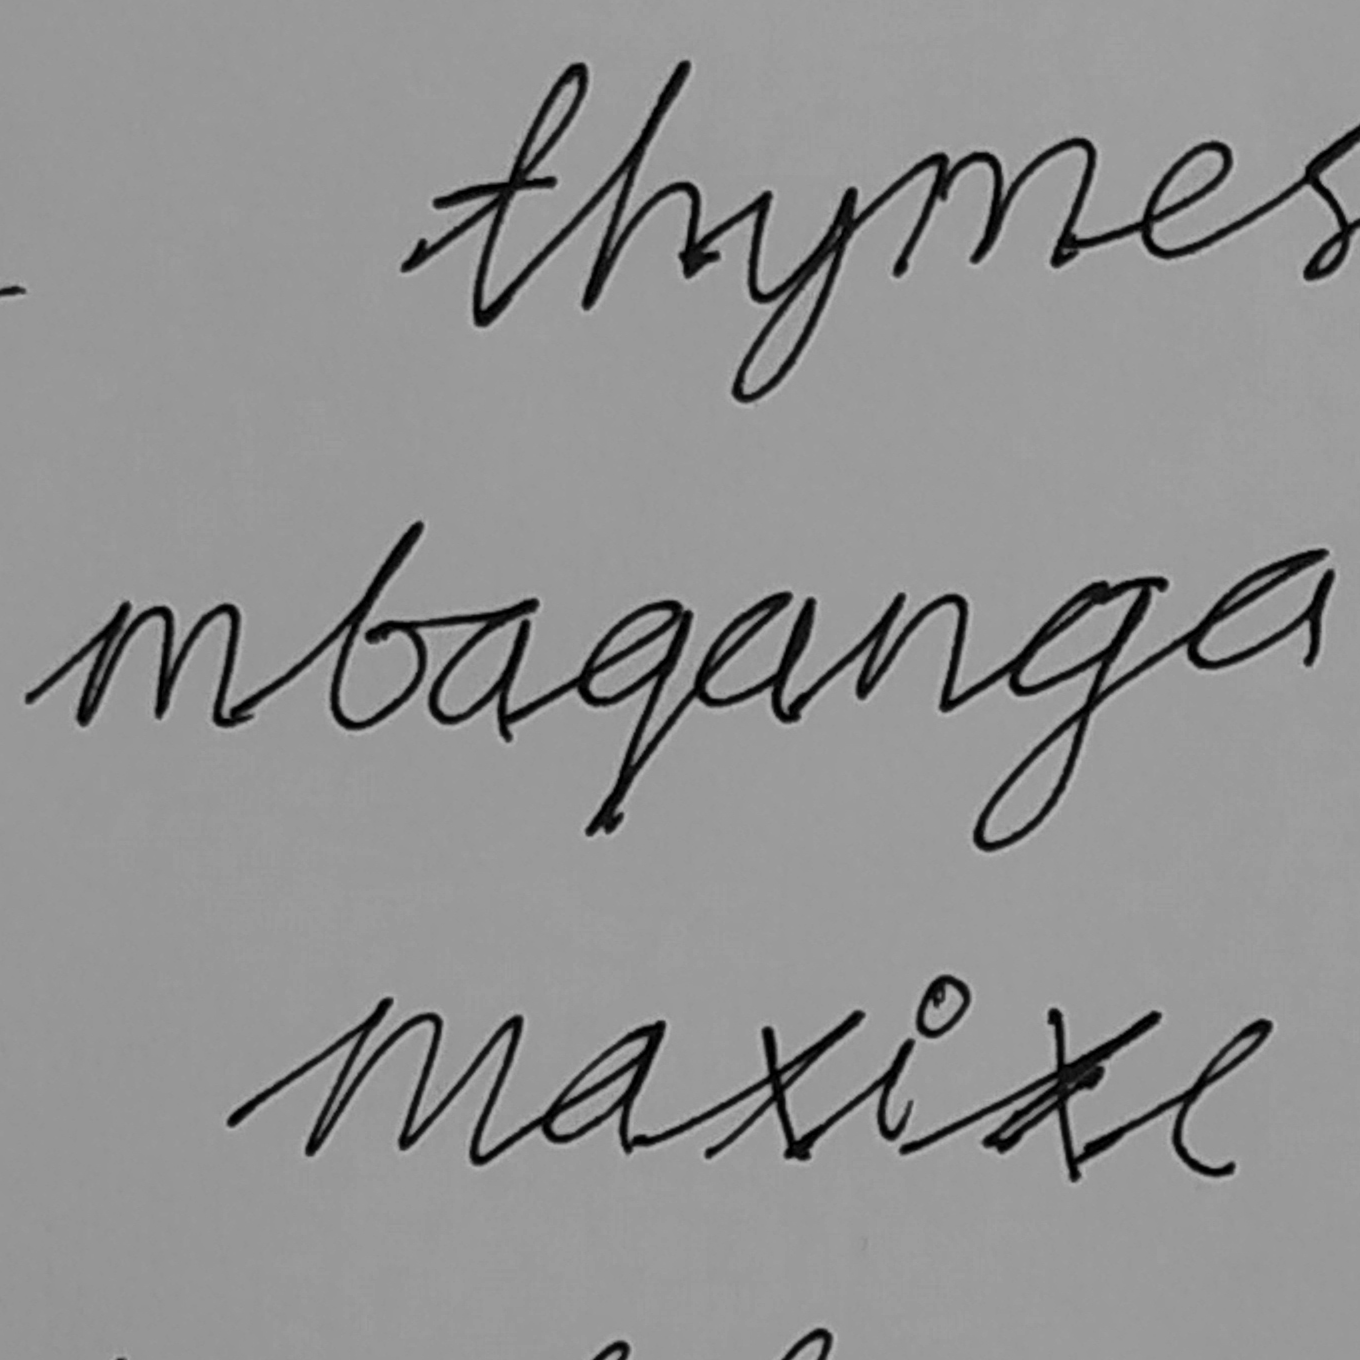 thymes
mbaqanga
maxixe